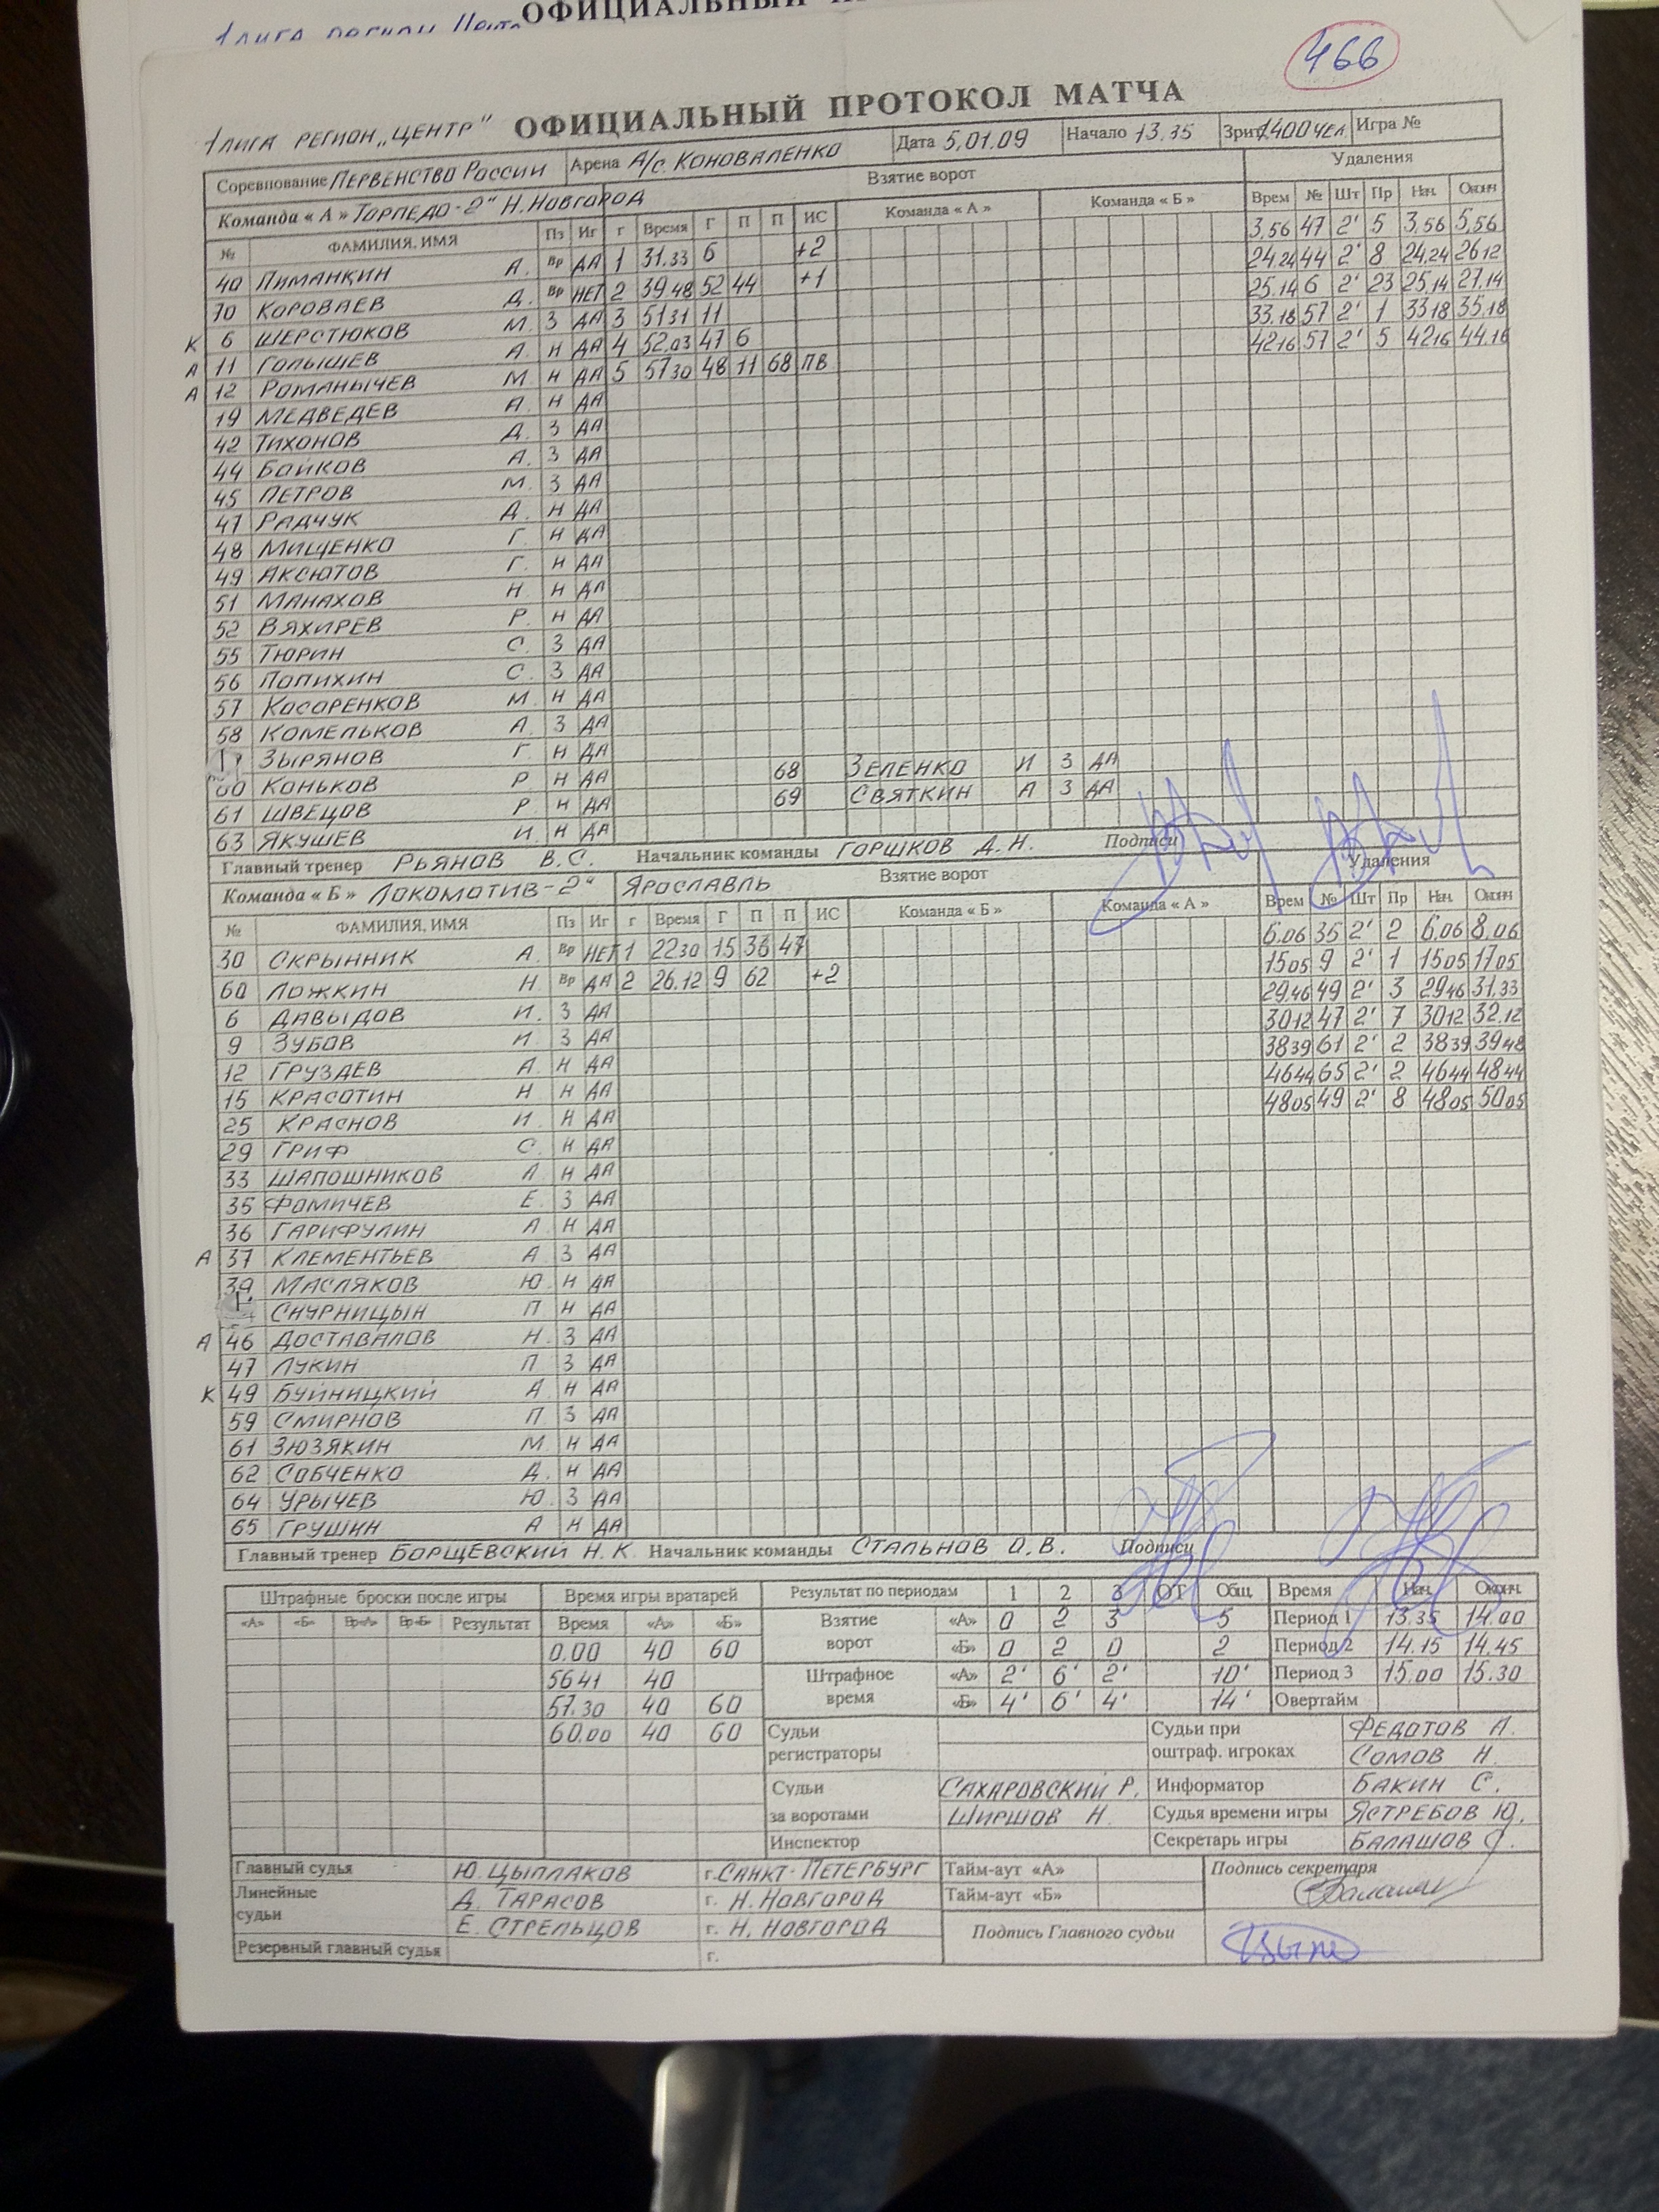 ОФИЦИАЛЬНЫЙ
1 лига регион
466
1 лига регион „Центр" ОФИЦИАЛЬНЫЙ ПРОТОКОЛ МАТЧА
Соревнование Первенство России Арена А/с. Коноваленко Дата 5.01.09 Начало 13.35 Зрит 1400 чел. Игра №
Команда « А » Торпедо-2" Н.Новгород Взятие ворот Удаления
№ ФАМИЛИЯ, ИМЯ Пз Иг г Время Г П П ИС Команда « А » Команда « Б » Врем № Шт Пр Нач. Оконч
40 Пиманкин А. Вр ДА 1 31.33 6 +2 3,56 47 2' 5 3,56 5,56
70 Короваев Д. Вр НЕТ 2 39 48 52 44 +1 24.24 44 2' 8 24,24 26 12
К 6 Шерстюков М. З ДА 3 51 31 11 25.14 6 2' 23 25,14 27,14
А 11 Голышев А. Н ДА 4 52.03 47 6 33.18 57 2' 1 33 18 35.18
А 12 Романычев М. Н ДА 5 57 30 48 11 68 ПВ 42 16 57 2' 5 42 16 44.16
19 Медведев А. Н ДА
42 Тихонов Д. З ДА
44 Байков А. З ДА
45 Петров М. З ДА
47 Радчук Д. Н ДА
48 Мищенко Г. Н ДА
49 Аксютов Г. Н ДА
51 Манахов Н Н ДА
52 Вяхирев Р. Н ДА
55 Тюрин С. З ДА
56 Папихин С. З ДА
57 Касаренков М. Н ДА
58 Комельков А. З ДА
Зырянов Г. Н ДА
60 Коньков Р. Н ДА 68 Зеленко И З ДА
61 Швецов Р. Н ДА 69 Святкин А З ДА
63 Якушев И. Н ДА
Главный тренер Рьянов В.С. Начальник команды Горшков Д.Н. Подписи
Команда « Б » Локомотив-2" Ярославль Взятие ворот Удаления
№ ФАМИЛИЯ, ИМЯ Пз Иг г Время Г П П ИС Команда « Б » Команда « А » Врем № Шт Пр Нач. Оконч
30 Скрынник А. Вр НЕТ 1 22 30 15 36 47 6.06 35 2' 2 6,06 8.06
60 Ложкин Н Вр ДА 2 26.12 9 62 +2 15 05 9 2' 1 15 05 17 05
6 Давыдов И. З ДА 29.46 49 2' 3 29 46 31.33
9 Зубов И З ДА 30 12 47 2' 7 30 12 32.12
12 Груздев А. Н ДА 38 39 61 2' 2 38 39 39 48
15 Красотин Н Н ДА 46 44 65 2' 2 46 44 48 44
25 Краснов И. Н ДА 48 05 49 2' 8 48 05 50 05
29 Гриф С. Н ДА
33 Шапошников А Н ДА
35 Фомичев Е. З ДА
36 Гарифулин А. Н ДА
А 37 Клементьев А З ДА
39 Масляков Ю. Н ДА
Снурницын П Н ДА
А 46 Доставалов Н. З ДА
47 Лукин П З ДА
К 49 Буйницкий А. Н ДА
59 Смирнов П. З ДА
61 Зюзякин М. Н ДА
62 Собченко Д. Н ДА
64 Урычев Ю. З ДА
65 Грушин А Н ДА
Главный тренер Борщевский Н.К. Начальник команды Стальнов О.В. Подписи
Штрафные броски после игры Время игры вратарей Результат по периодам 1 2 3 ОТ Общ. Время Нач. Оконч.
«А» «Б» Вр«А» Вр«Б» Результат Время «А» «Б» Взятие ворот «А» 0 2 3 5 Период 1 13.35 14.00
0.00 40 60 «Б» 0 2 0 2 Период 2 14.15 14.45
56 41 40 Штрафное время «А» 2' 6' 2' 10' Период 3 15.00 15.30
57.30 40 60 «Б» 4' 6' 4' 14' Овертайм
60.00 40 60 Судьи регистраторы Судьи при оштраф. игроках Федотов А.
Сомов Н.
Судьи за воротами Сахаровский Р. Информатор Бакин С.
Ширшов Н. Судья времени игры Ястребов Ю.
Инспектор Секретарь игры Балашов С.
Главный судья Ю. Цыплаков г. Санкт-Петербург Тайм-аут «А» Подпись секретаря
Линейные судьи Д. Тарасов г. Н.Новгород Тайм-аут «Б»
Е. Стрельцов г. Н. Новгород Подпись Главного судьи
Резервный главный судья г.